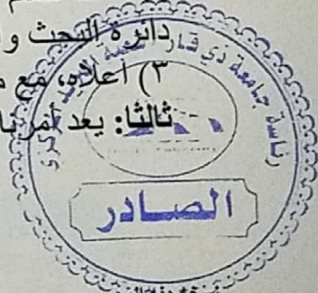 دائرة البحث وا
٣) اعلاه، مع م
ثالثا: يعد أمرنا
رئاسة جامعة ذي قار
الصادر